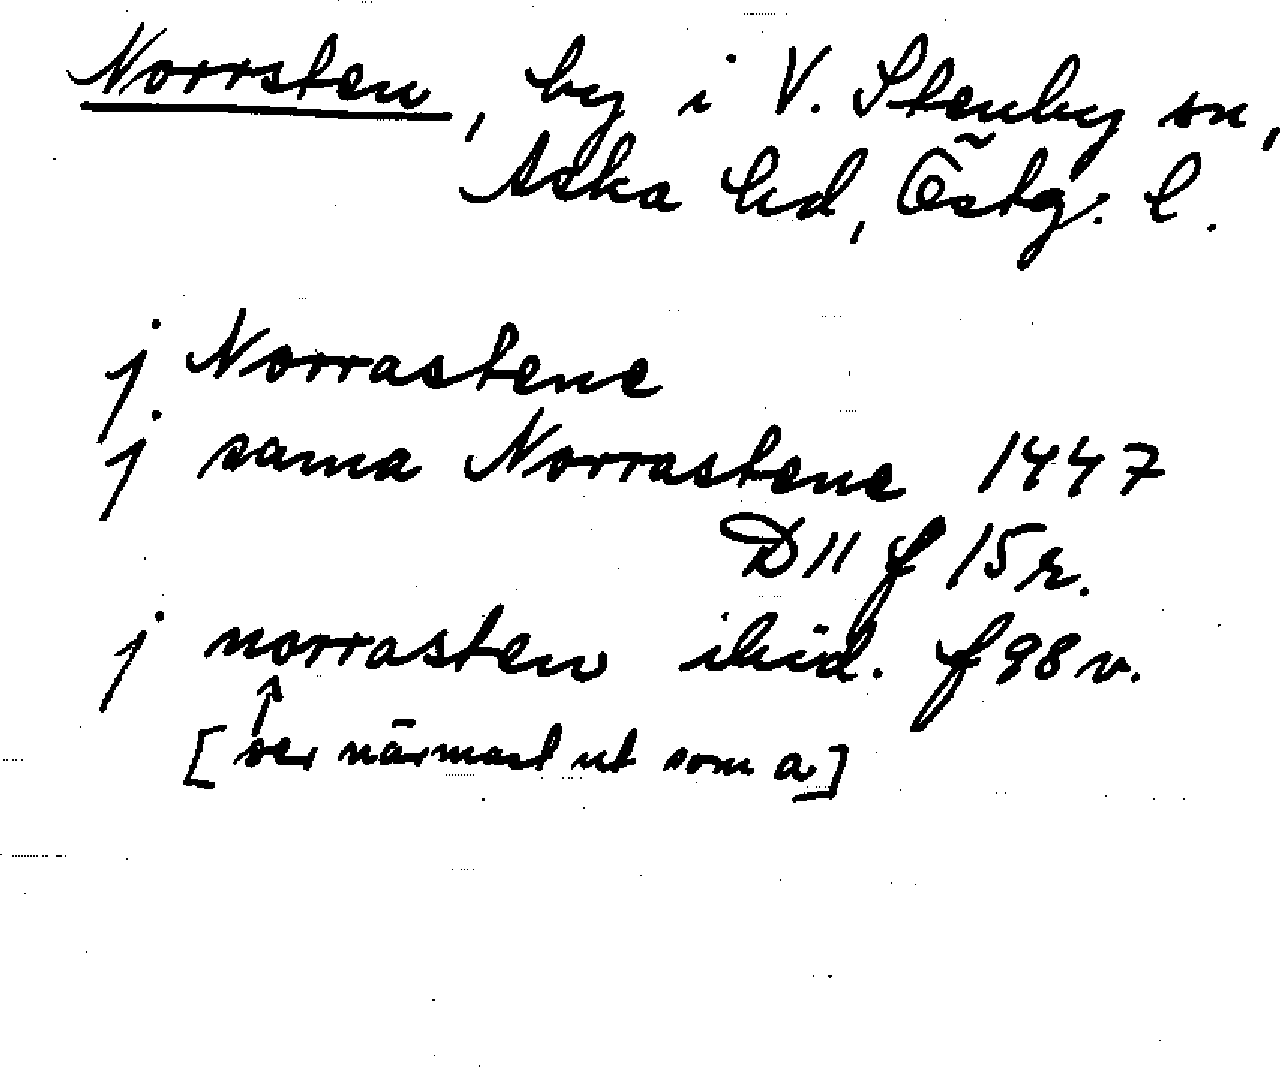 Norrsten, by i V. Stenby sn,
Aska hd, Östg. l.
j Norrastene
j sama Norrastene 1447
D 11 f 15 r.
j norrasten ibid. f 98 v.
↑
[ser närmast ut som a]